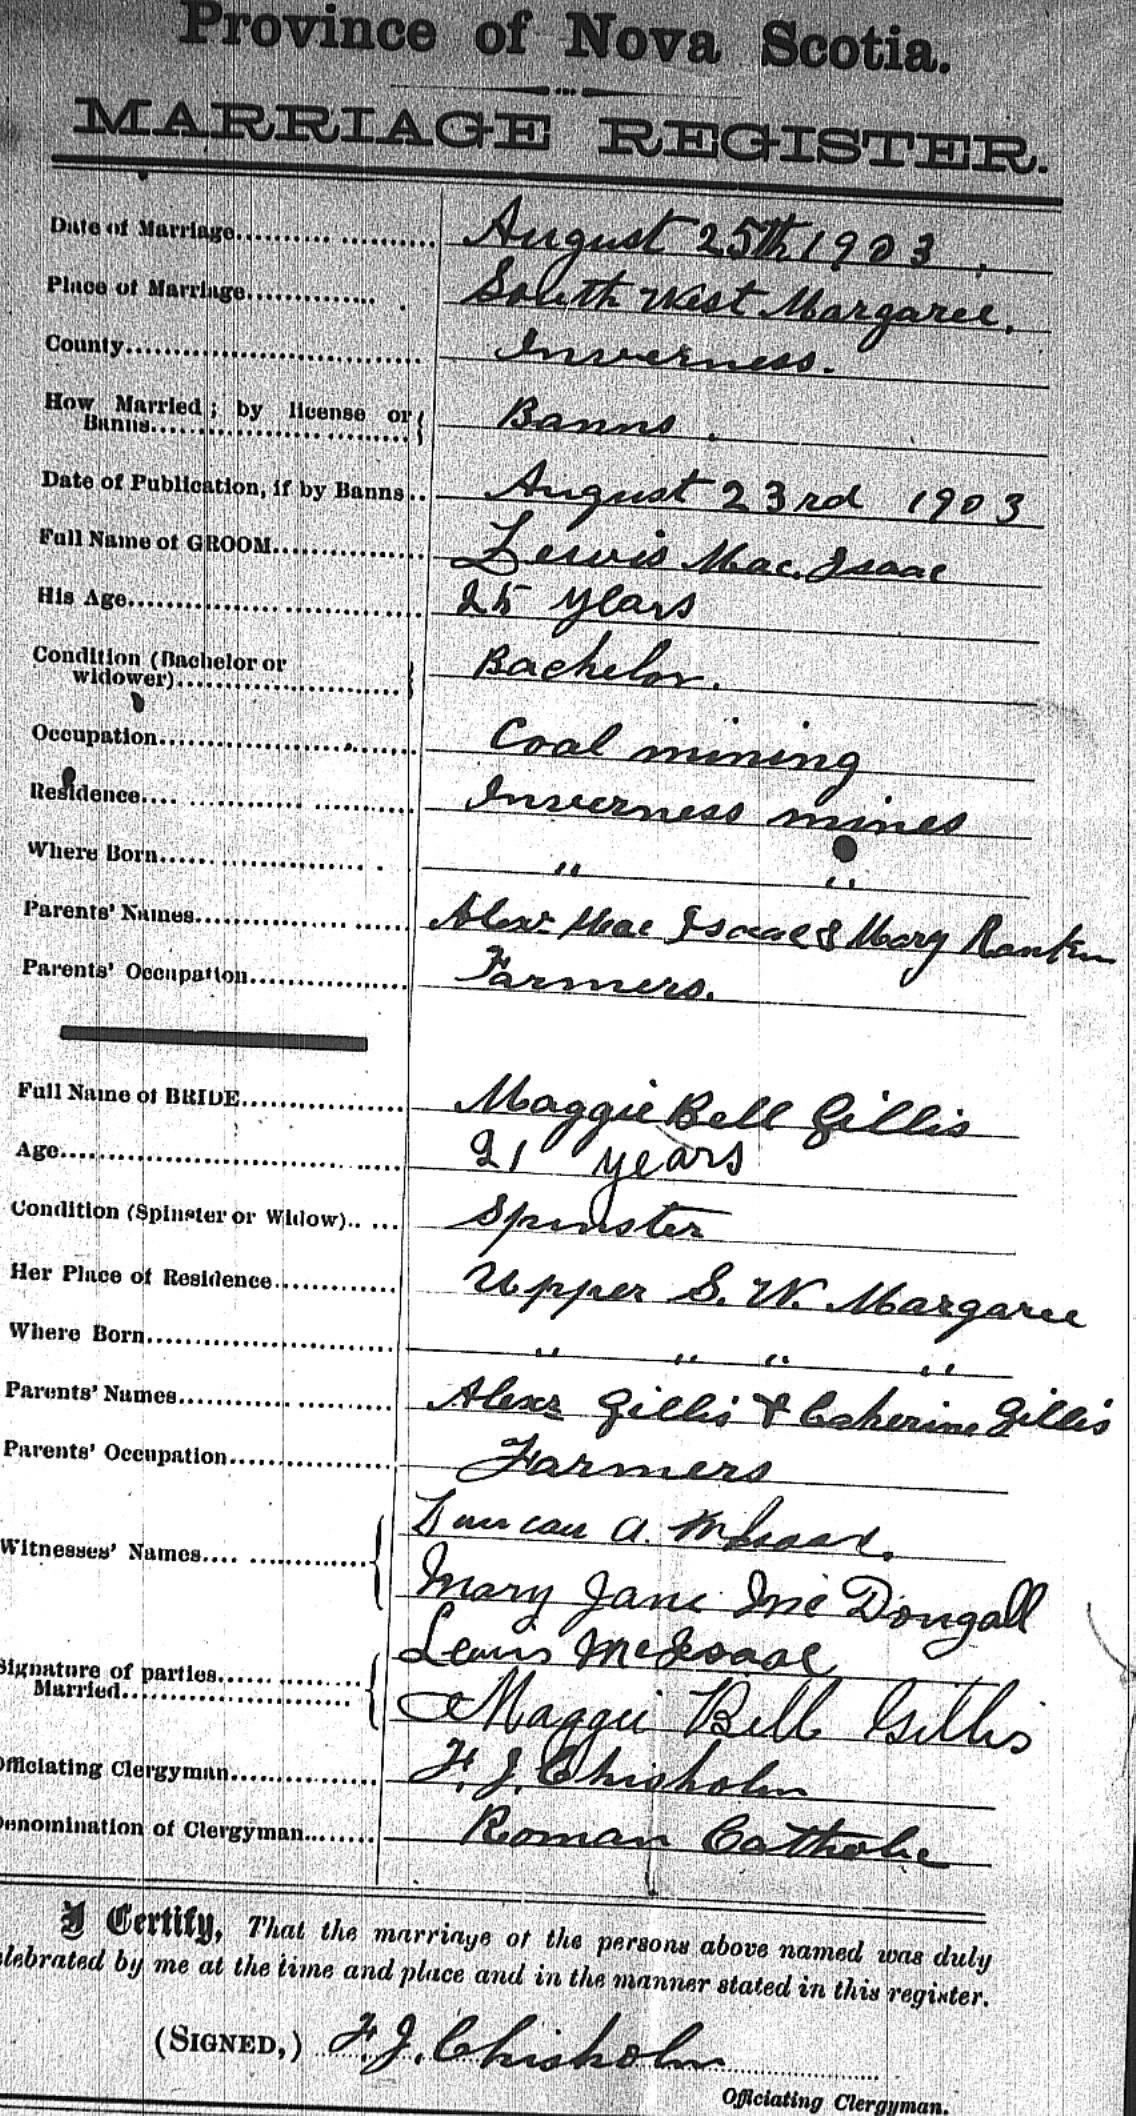 Province of Nova Scotia.
MARRIAGE REGISTER.
Date of Marriage.......... August 25th 1903.
Place of Marriage.......... South West Margaree.
County.......... Inverness.
How Married; by license or
Banns.......... Banns.
Date of Publication, if by Banns.. August 23rd 1903
Full Name of GROOM.......... Lewis Mac. Isaac
His Age.......... 25 years
Condition (Bachelor or
widower).......... Bachelor.
Occupation.......... Coal mining
Residence.......... Inverness mines
Where Born.......... " "
Parents' Names.......... Alexr Mac Isaac & Mary Rankin
Parents' Occupation.......... Farmers.
Full Name of BRIDE.......... Maggie Bell Gillis
Age.......... 21 years
Condition (Spinster or Widow).. ... Spinster
Her Place of Residence.......... Upper S. W. Margaree
Where Born.......... " " " "
Parents' Names.......... Alexr Gillis & Catherine Gillis
Parents' Occupation.......... Farmers
Witnesses' Names.......... Duncan A. McIsaac.
Mary Jane McDougall
Signature of parties.......... Lewis McIsaac
Married.......... Maggie Bell Gillis
Officiating Clergyman.......... F. J. Chisholm
Denomination of Clergyman.......... Roman Catholic
I Certify, That the marriage of the persons above named was duly
celebrated by me at the time and place and in the manner stated in this register.
(SIGNED,) F. J. Chisholm
Officiating Clergyman.